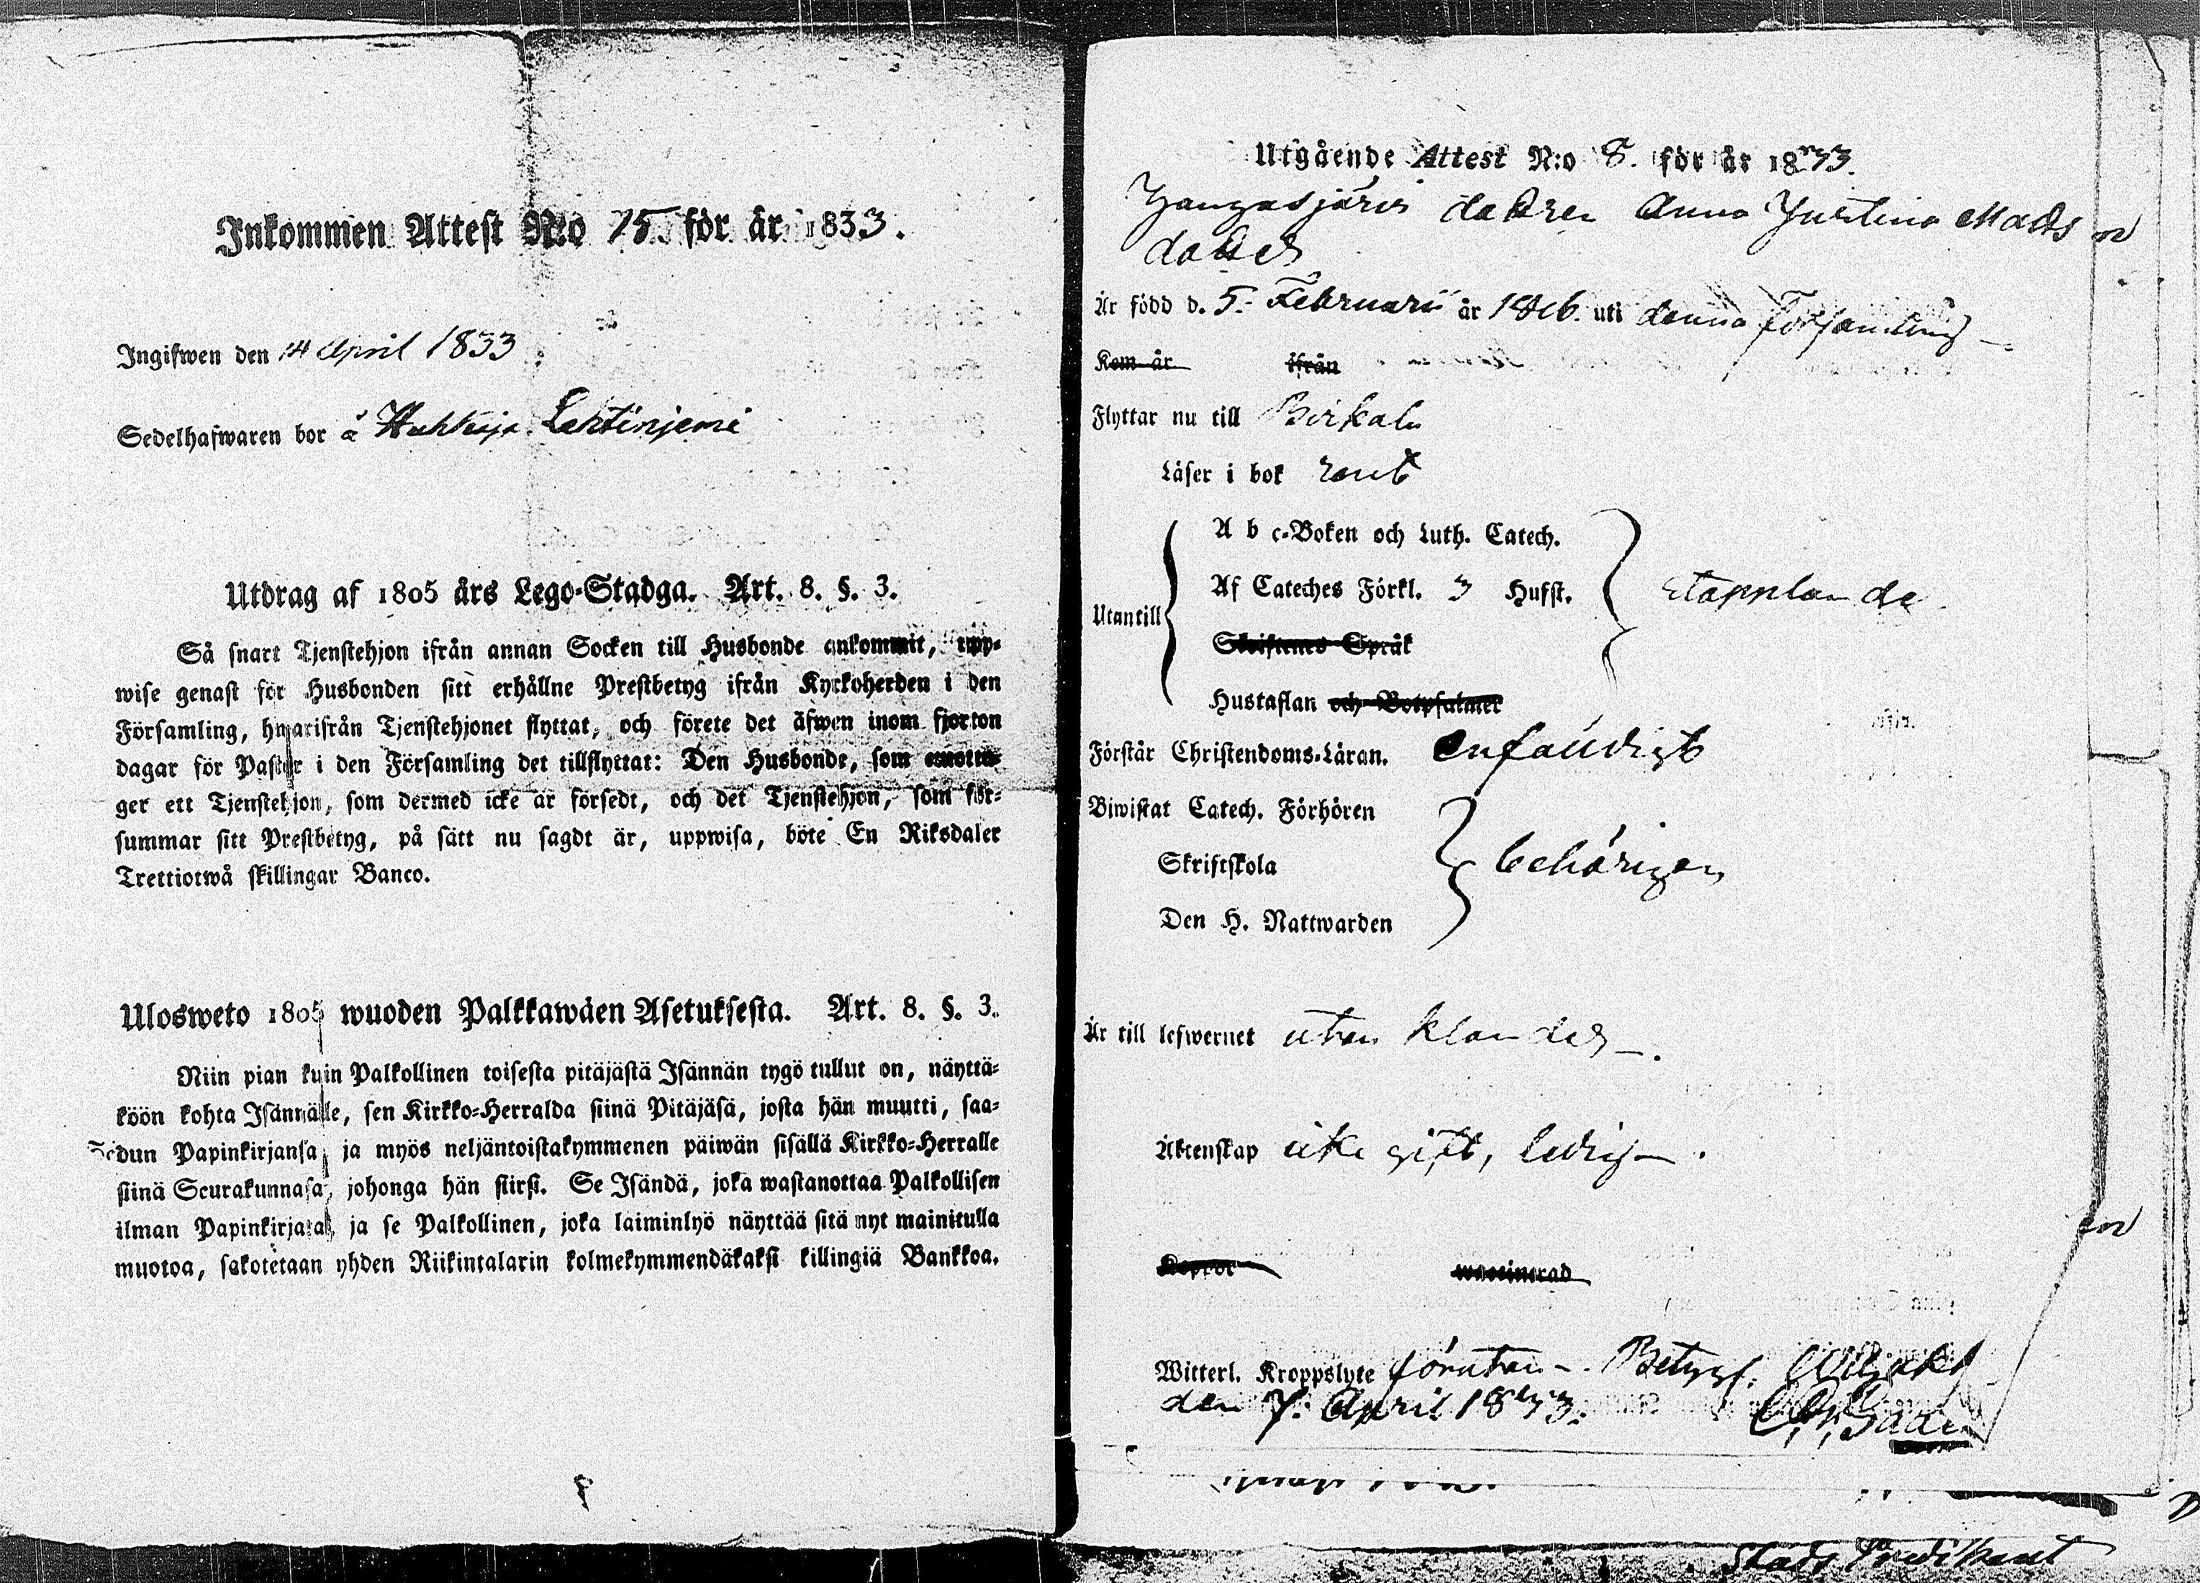 Inkommen Attest N:o 15. för år 1833.
Ingifwen den 14 April 1833.
Sedelhafwaren bor å Lehtinjemi
Utdrag af 1805 års Lego-Stadga. Art. 8. §. 3.
Så snart Tjenstehjon ifrån annan Socken till Husbonde ankommit, upp-
wise genast för Husbonden sitt erhållne Prestbetyg ifrån Kyrkoherden i den
Församling, hwarifrån Tjenstehjonet flyttat, och förete det äfwen inom fjorton
dagar för Pastor i den Församling det tillflyttat: Den Husbonde, som emotta-
ger ett Tjenstehjon, som dermed icke är försedt, och det Tjenstehjon, som för-
summar sitt Prestbetyg, på sätt nu sagdt är, uppwisa, böte En Riksdaler
Trettiotwå skillingar Banco.
Ulosweto 1805 wuoden Palkkawäen Asetuksesta. Art. 8. §. 3.
Niin pian kuin Palkollinen toisesta pitäjästä Isännän tygö tullut on, näyttä-
köön kohta Isännälle, sen Kirkko-Herralda siinä Pitäjäsä, josta hän muutti, saa-
dun Papinkirjansa, ja myös neljäntoistakymmenen päiwän sisällä Kirkko-Herralle
siinä Seurakunnasa, johonga hän siirsi. Se Isändä, joka wastanottaa Palkollisen
ilman Papinkirjata, ja se Palkollinen, joka laiminlyö näyttää sitä nyt mainitulla
muotoa, sakotetaan yhden Riikintalarin kolmekymmendäkaksi killingiä Bankkoa.
Utgående Attest N:o 8. för år 1833.
dottren Anna Justina Mats
dotter
Är född d. 5. Februarii år 1816. uti denna Församling
Kom år ifrån
Flyttar nu till Birkala
Läser i bok rent
A b c-Boken och Luth. Catech.
Af Cateches Förkl. 3 Hufst.
Utantill
Skriftenes Språk
Hustaflan och Botpsalmer
Förstår Christendoms-Läran. enfaldigt
Biwistat Catech. Förhören
Skriftskola behörigen
Den H. Nattwarden
Är till lefwernet utan klander
Äktenskap icke gift, ledig
Koppor waccinerad
Witterl. Kroppslyte förutan. Betyg.
den 7. April 1833.
Stads Predikant